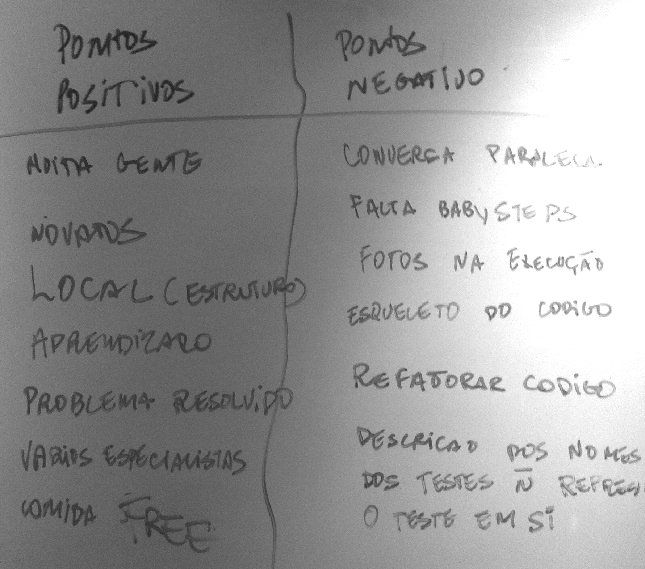 PONTOS
POSITIVOS
MUITA GENTE
NOVATOS
LOCAL (ESTRUTURA)
APRENDIZADO
PROBLEMA RESOLVIDO
VARIOS ESPECIALISTAS
COMIDA FREE
PONTOS
NEGATIVO
CONVERÇA PARALELA
FALTA BABYSTEPS
FOTOS NA EXECUÇÃO
ESQUELETO DO CODIGO
REFATORAR CODIGO
DESCRICAO DOS NOMES
DOS TESTES Ñ REPRES
O TESTE EM SI